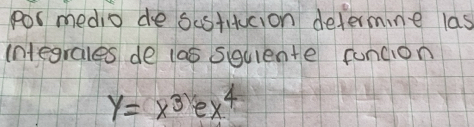 por medio de sustitucion determine las
integrales de las siguiente funcion
y = x³ex⁴